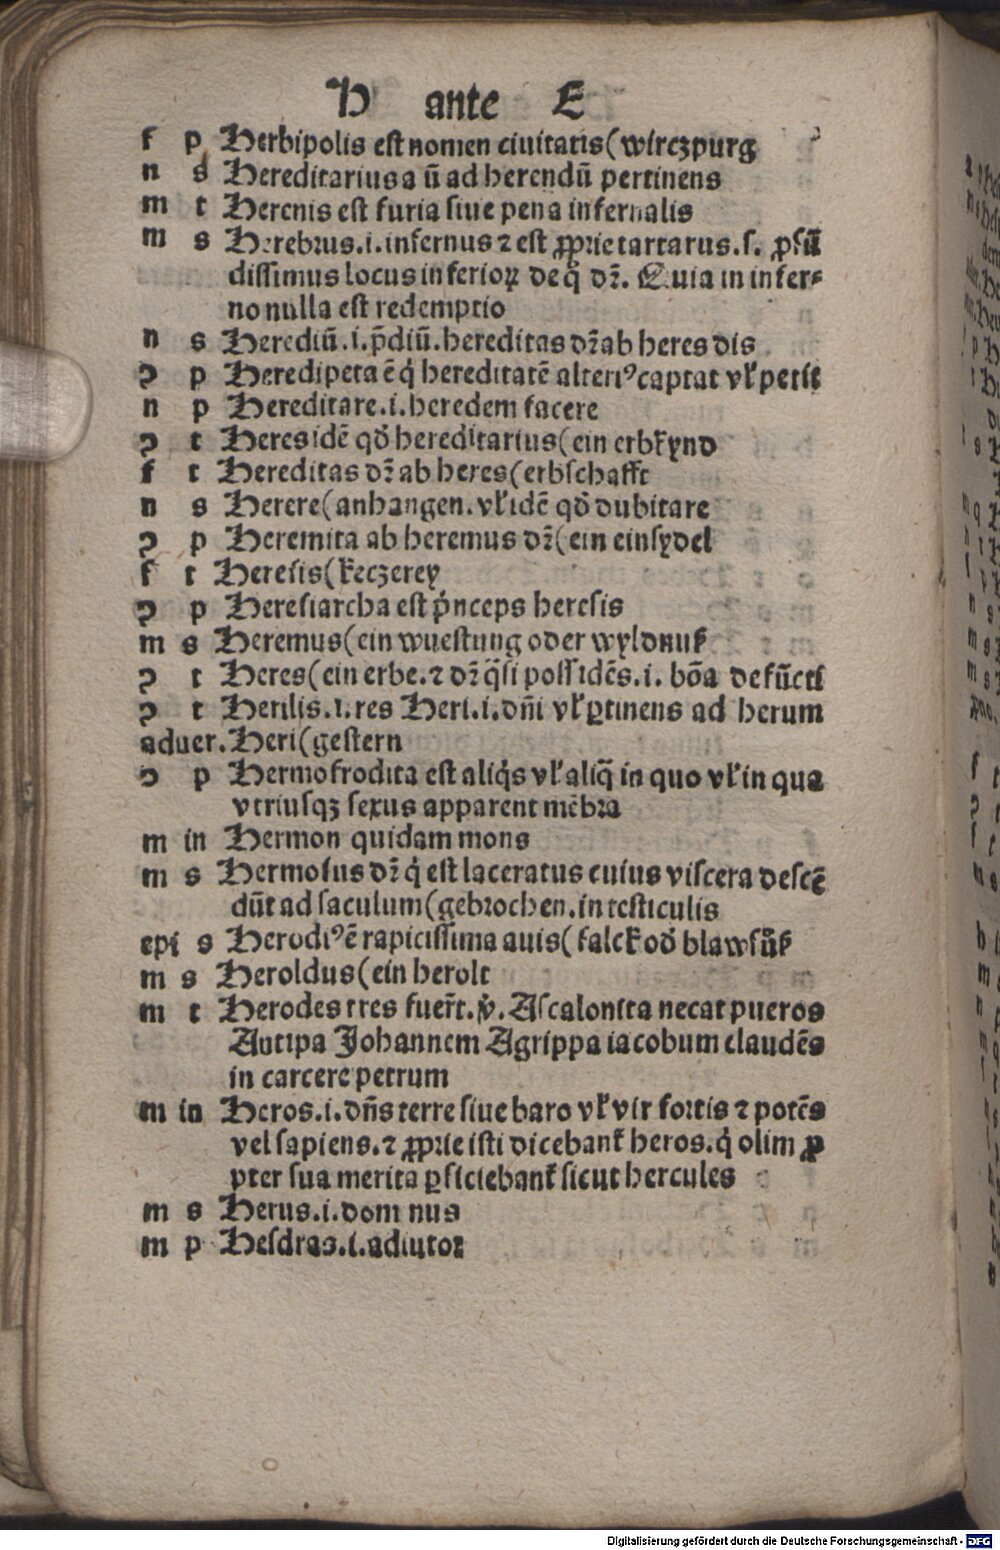 H ante E
f p Herbipolis est nomen ciuitatis(wirczpurg
n s Hereditarius a ū ad herendū pertinens
m t Herenis est furia siue pena infernalis
m s Herebrus.i.infernus ⁊ est ꝓprie tartarus.s. ꝓfū
dissimus locus inferioꝝ de q̄ dr̄. Quia in infer⸗
no nulla est redemptio
n s Herediū.i.p̄diū.hereditas dr̄ ab heres dis
ꝯ p Heredipeta ē q̇ hereditatē alteriꝰ captat vl̓ petit
n p Hereditare.i.heredem facere
ꝯ t Heres idē qd̓ hereditarius(ein erbkynd
f t Hereditas dr̄ ab heres(erbschafft
n s Herere(anhangen.vl̓ idē qd̓ dubitare
ꝯ p Heremita ab heremus dr̄(ein einsydel
f t Heresis(keczerey
ꝯ p Heresiarcha est p̓nceps heresis
m s Heremus(ein wuestung oder wyldnuß
ꝯ t Heres(ein erbe.⁊ dr̄ q̄si possidēs.i. bōa defūcti
ꝯ t Herilis.i.res Heri.i.dn̄i vl̓ ꝑtinens ad herum
aduer.Heri(gestern
ꝯ p Hermofrodita est aliq̇s vl̓ aliq̄ in quo vl̓ in qua
vtriusqꝫ sexus apparent mēbra
m in Hermon quidam mons
m s Hermosus dr̄ q̇ est laceratus cuius viscera descē
dūt ad saculum(gebrochen.in testiculis
epi s Herodiꝰ ē rapicissima auis(falck od̓ blawfůß
m s Heroldus(ein herolt
m t Herodes tres fuer̄t.p̓. Ascalonita necat pueros
Antipa Johannem Agrippa iacobum claudēs
in carcere petrum
m in Heros.i.dn̄s terre siue baro vl̓ vir fortis ⁊ potēs
vel sapiens.⁊ ꝓprie isti dicebant̓ heros.q̇ olim ꝓ
pter sua merita ꝑficiebant̓ sicut hercules
m s Herus.i.dom nus
m p Hesdras.i.adiutor
Digitalisierung gefördert durch die Deutsche Forschungsgemeinschaft - DFG